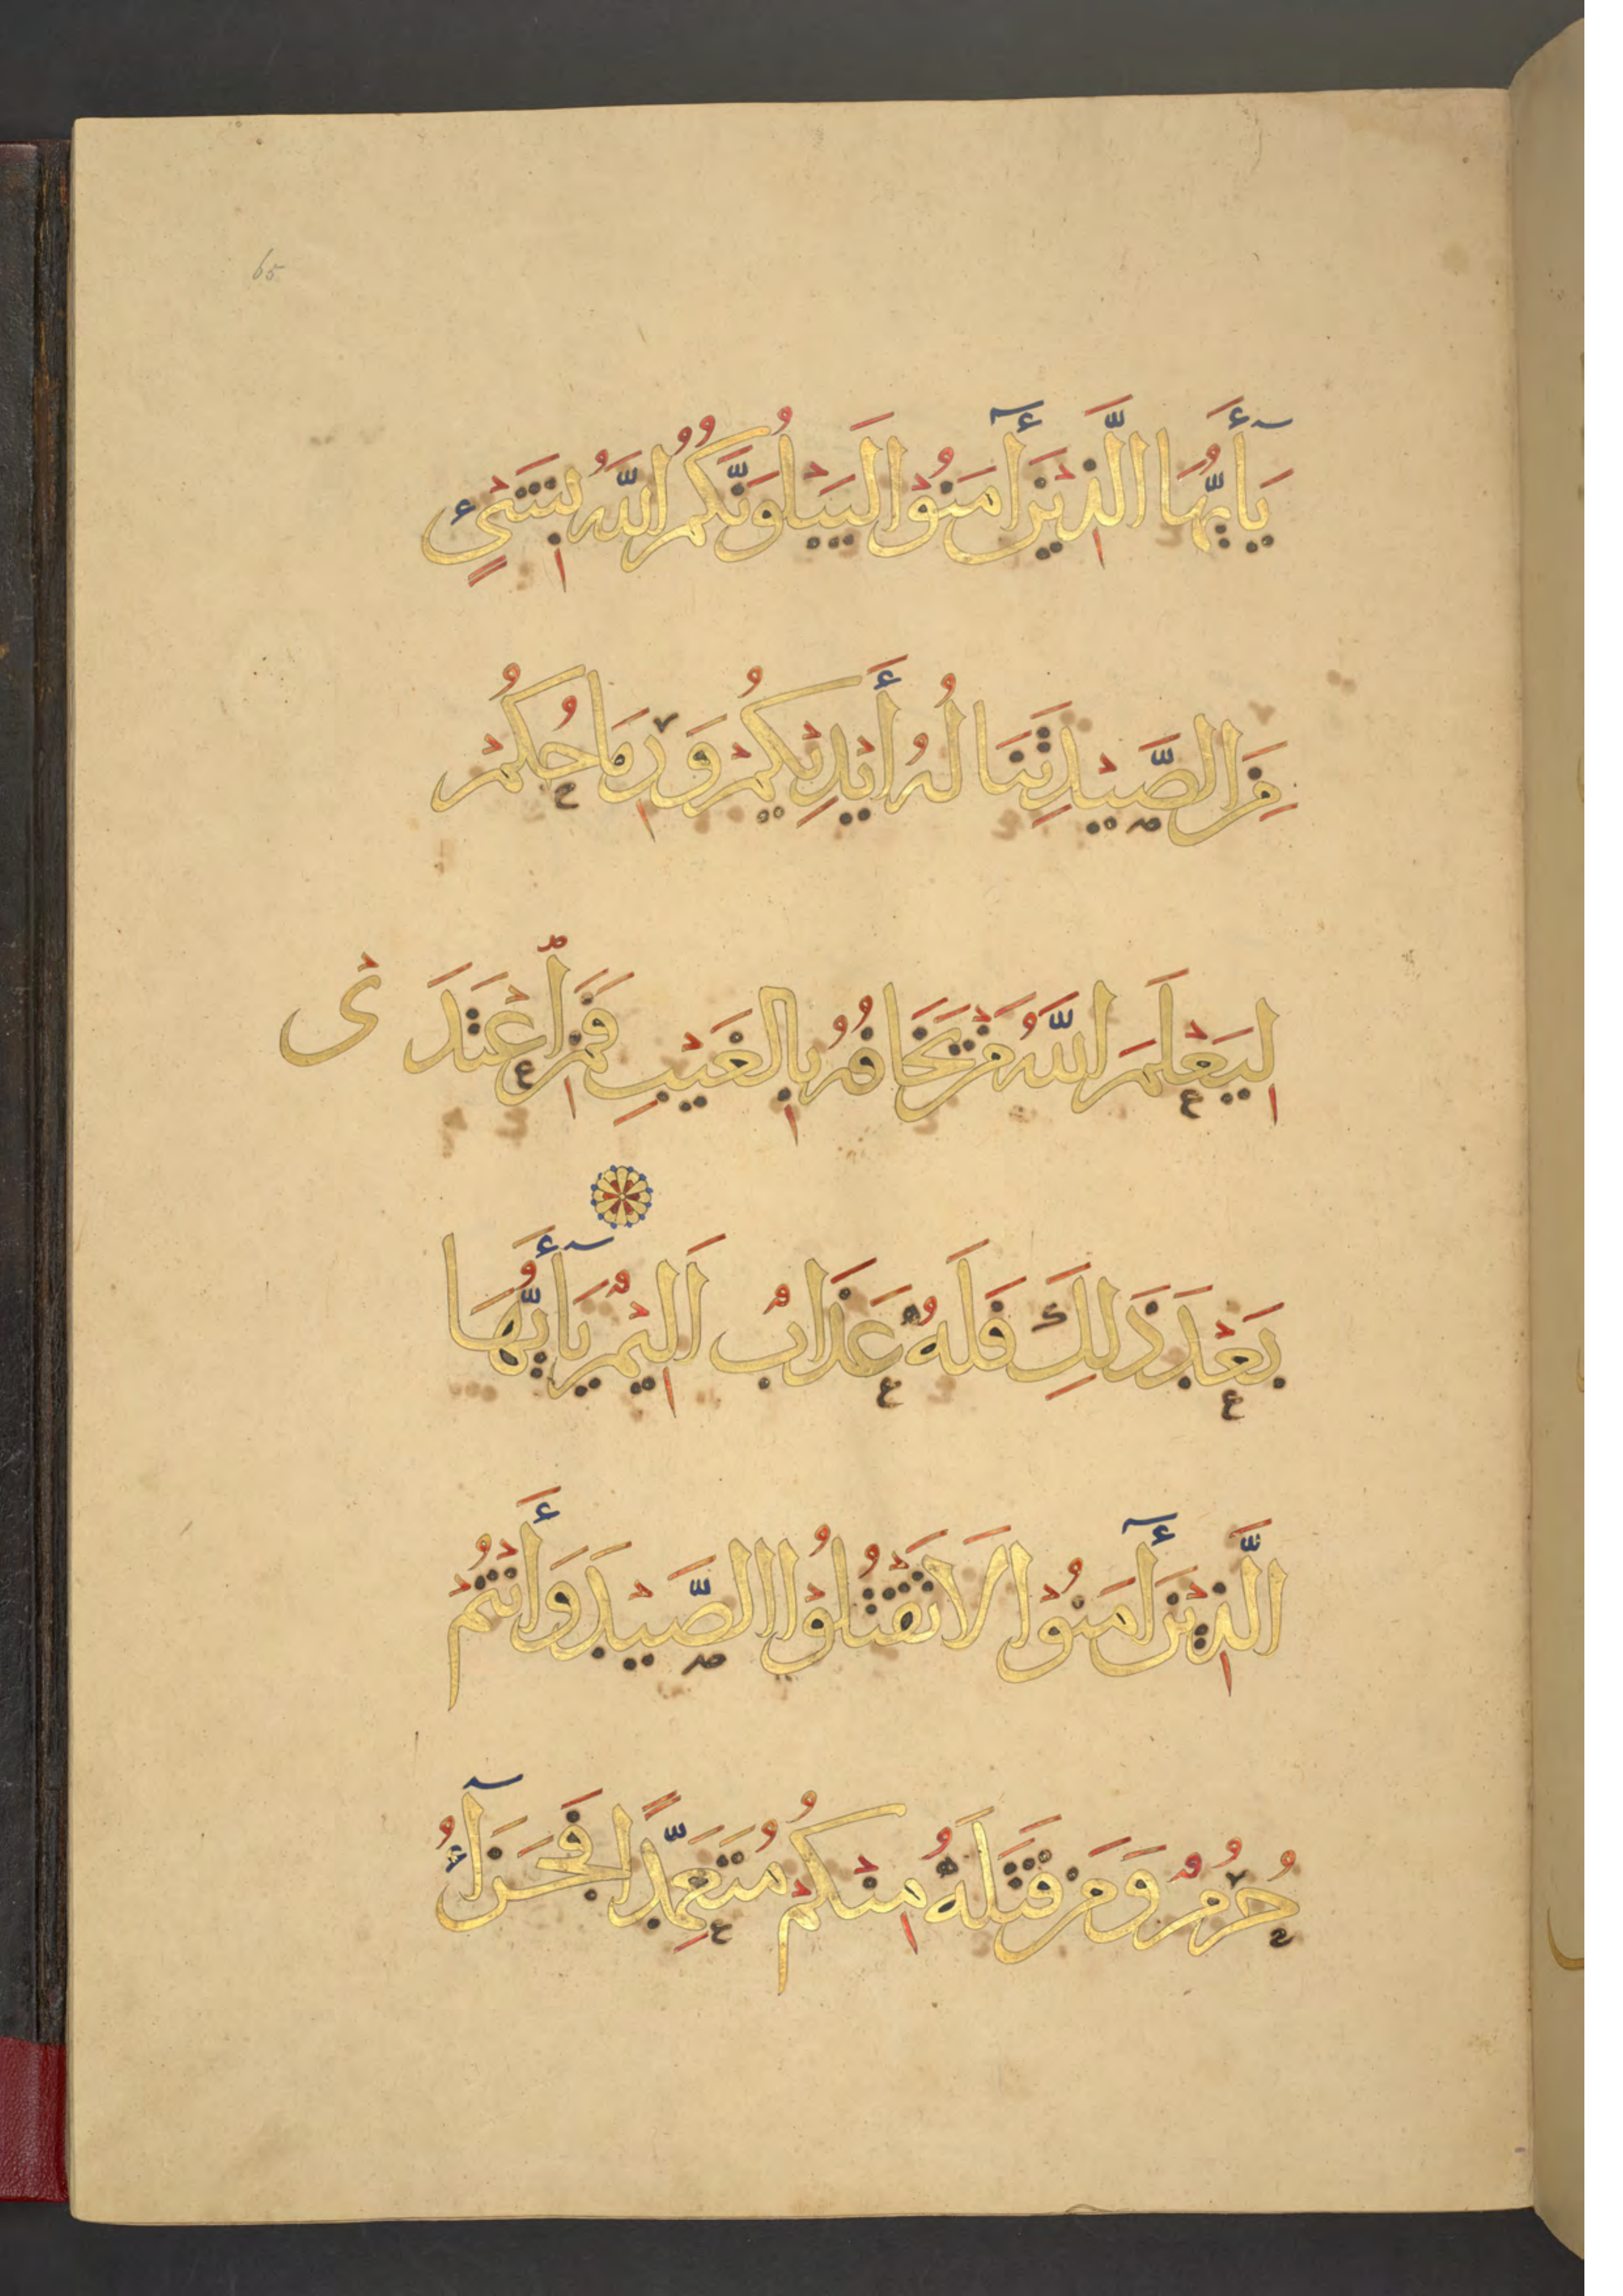 65
يَأَيُّهَا الَّذِيْنَ أٓمَنُوْا لَيَبْلُوَنَّكُمُ اللَّهُ بِشَيْءٍ
مِنَ الصَّيْدِ تَنَالُهُ أَيْدِيْكُمْ وَرِمَاحُكُمْ
لِيَعْلَمَ اللَّهُ مَنْ يَخَافُهُ بِالْغَيْبِ فَمَنِ اعْتَدَىْ
بَعْدَ ذَلِكَ فَلَهُ عَذَابٌ اَلِيْمٌ يَأَيُّهَا
الَّذِيْنَ أٓمَنُوْا لَا تَقْتُلُوْا الصَّيْدَ وَأَنْتُمْ
حُرُمٌ وَمَنْ قَتَلَهُ مِنْكُمْ مُتَعَمِّدًا فَجَزَآءٌ